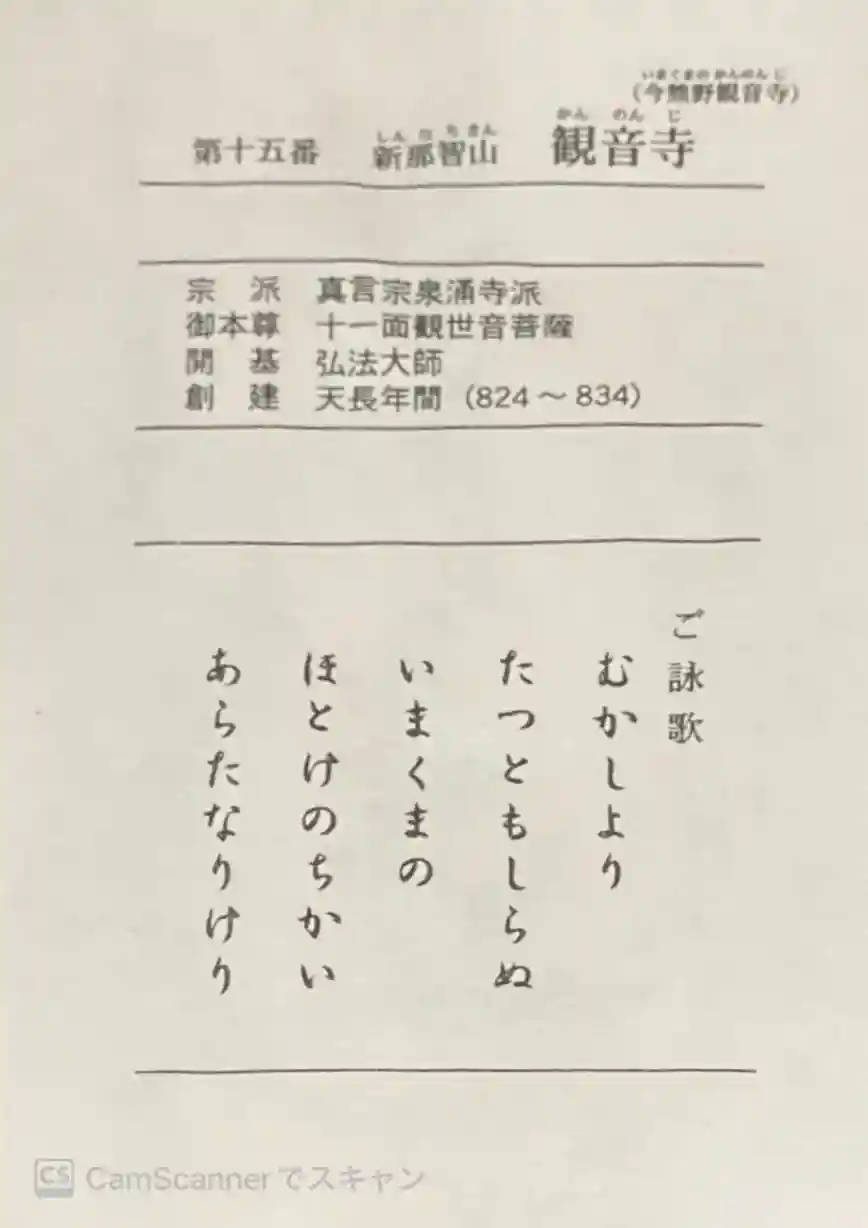 (今熊野観音寺)
いまぐまのかんのんじ
第十五番 新那智山 観音寺
しんなちさん かんのんじ
宗 派 真言宗泉涌寺派
御本尊 十一面観世音菩薩
開 基 弘法大師
創 建 天長年間 (824〜834)
ご詠歌
むかしより
たつともしらぬ
いまくまの
ほとけのちかい
あらたなりけり
CS CamScannerでスキャン